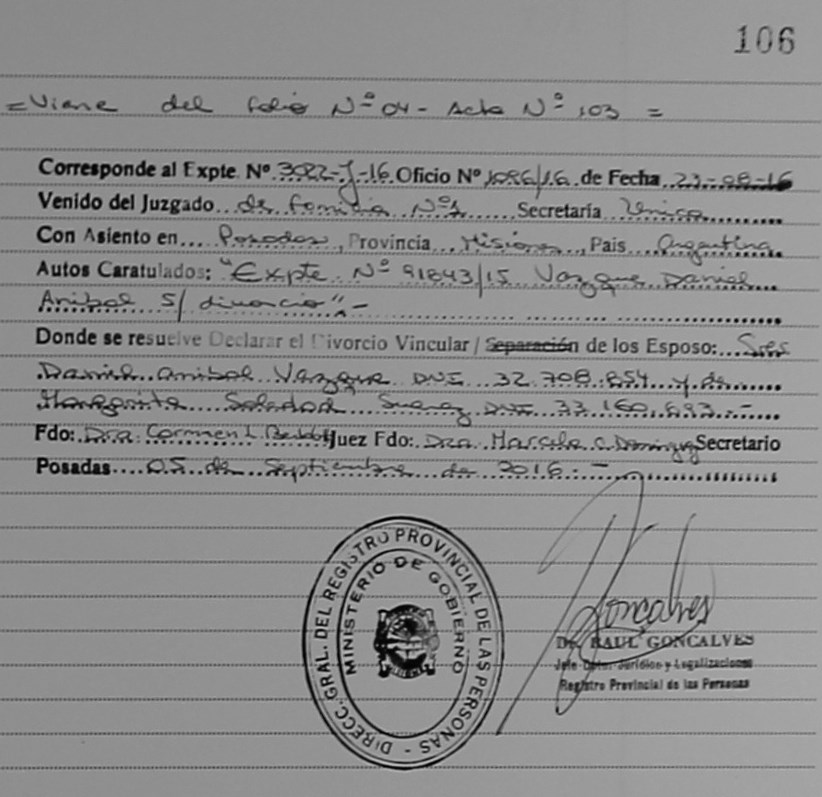 106
= Viene del folio Nº 04 - Acta Nº 103 =
Corresponde al Expte. Nº 3022-J-16 Oficio Nº 1086/16 de Fecha 23-08-16
Venido del Juzgado de Familia Nº 1 Secretaría Unica
Con Asiento en Posadas, Provincia Misiones, Pais Argentina
Autos Caratulados: "Expte. Nº 91843/15 Vazque Daniel
Anibal S/ divorcio".-
Donde se resuelve Declarar el Divorcio Vincular / Separación de los Esposo: Sres
Daniel Anibal Vazque DNI 32.708.654 y de
Margarita Soledad Suarez DNI 33.160.693.-
Fdo: Dra. Carmen L. Juez Fdo: Dra. Marcela C. Secretario
Posadas 05 de Septiembre de 2016.-
DIRECC. GRAL. DEL REGISTRO PROVINCIAL DE LAS PERSONAS -
MINISTERIO DE GOBIERNO
Goncalves
Dr. RAUL GONCALVES
Jefe Dpto. Jurídico y Legalizaciones
Registro Provincial de las Personas